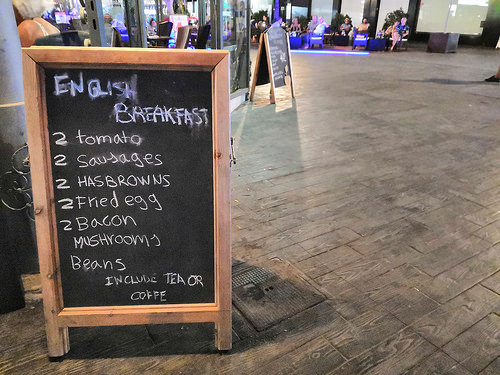 ENGLISH
BREAKFAST
2 tomato
2 Sausages
2 HASBROWNS
2 Fried egg
2 Bacon
MUSHrooms
Beans
INCLUDE TEA OR
COFFE